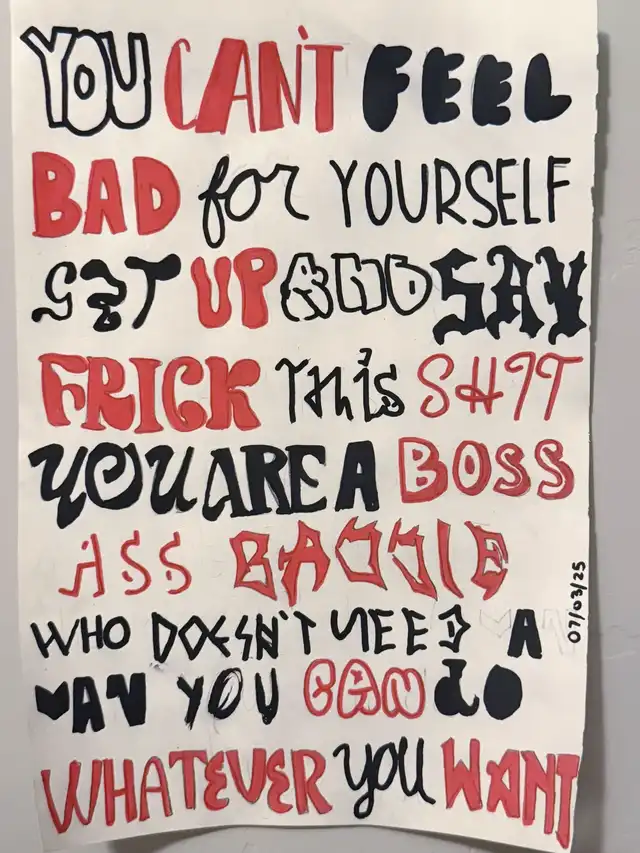 YOU CAN'T FEEL
BAD for YOURSELF
GET UP AND SAY
FRICK THiS SHIT
YOU ARE A BOSS
ASS BADDIE
WHO DOESN'T NEED A
MAN YOU CAN do
WHATEVER you WANT
07/03/25